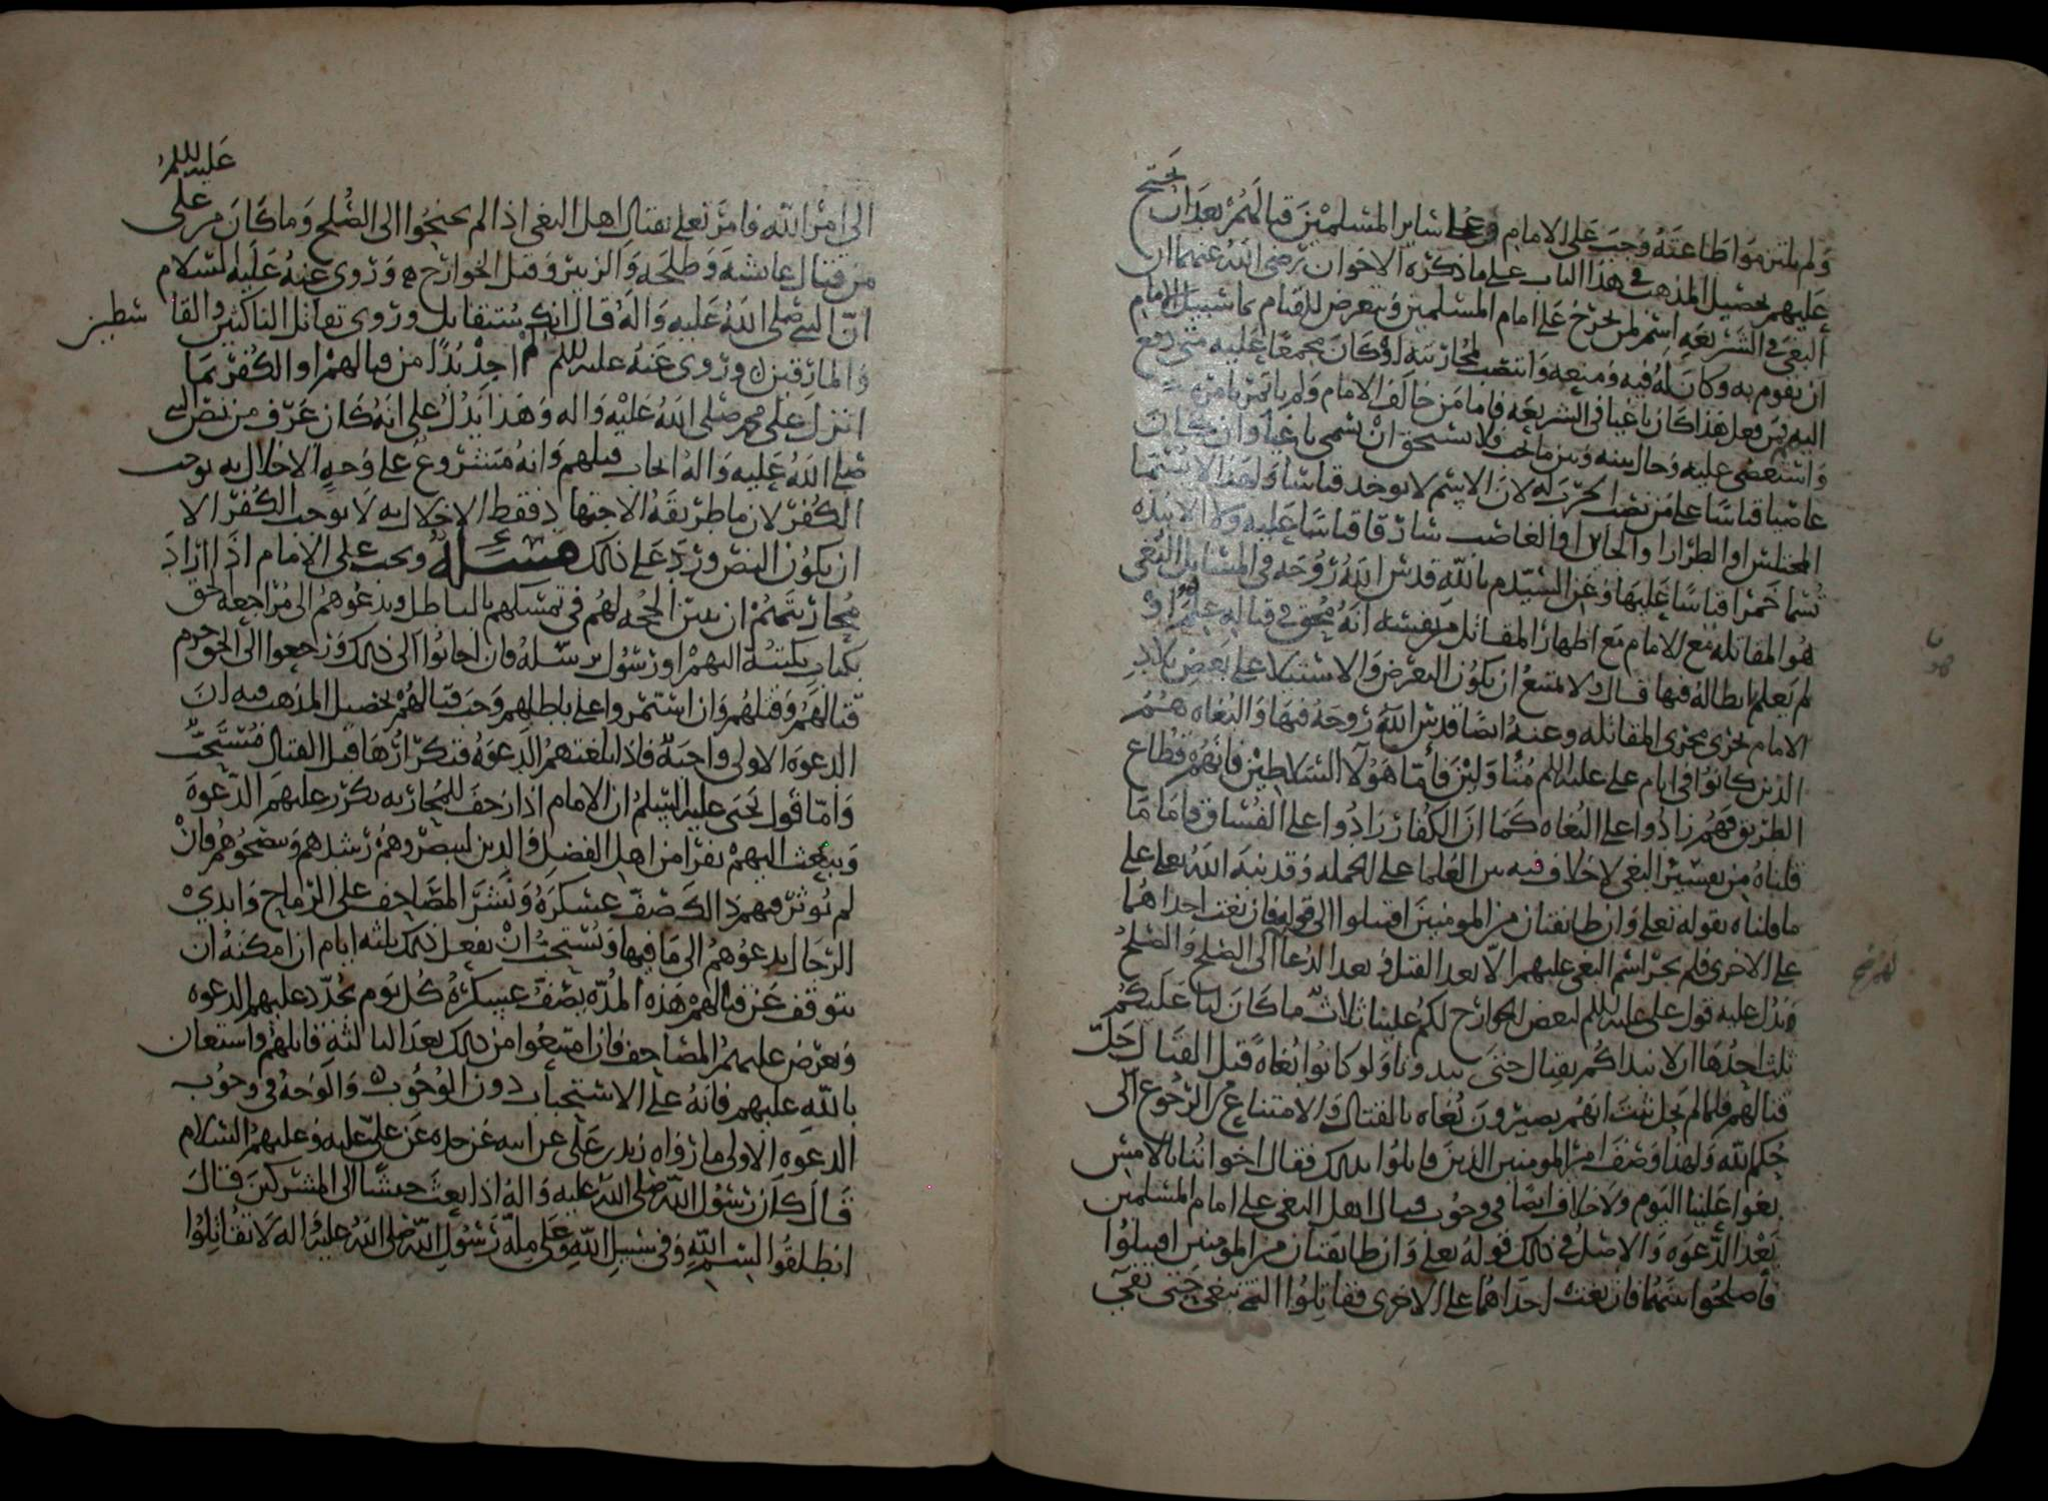 ولم يلتزموا طاعته وجب على الامام وعلى ساير المسلمين قتالهم بعد ان يحتج
عليهم تحصيل المذهب في هذا الباب على ما ذكره الاخوان رضي الله عنهما ان
البغي في الشريعة اسم لمن يخرج على امام المسلمين ويتعرض للقيام بما سبيل الامام
ان يقوم به وكان له فيه ومنعه وانتصب لمحاربته اذ كان مجمعا عليه متى دفع
اليه فمن فعل هذا كان باغيا في الشريعة فاما من خالف الامام ولم ياتمر بامره
واستعصى عليه وحال بينه وبين ما يجب فلا يستحق ان يسمى باغيا وان كان
عاصيا قياسا على من نصب الحرب له لان الاسم لا يوخذ قياسا ولهذا لا يسمى
المختلس او الطرار او الخاين او الغاصب سارقا قياسا عليه وكالانبذه
تسما خمرا قياسا عليها وعن السيد م بالله قدس الله روحه في المسايل البغي
هو المقاتله مع الامام مع اظهار المقاتل من نفسه انه محق في قتاله علم او
لم يعلم ابطاله فيها قال ولا يمتنع ان يكون التعرض والاستيلا على بعض بلاد
الامام تجري مجرى المقاتله وعنه ايضا قدس الله روحه فيها والبغاه هم
الذين كانوا في ايام علي عليه السلم متاولين فاما هولا السلاطين فانهم قطاع
الطريق فهم زادوا على البغاه كما ان الكفار زادوا على الفساق فاما ما
قلناه من تفسير البغي لا خلاف فيه بين العلما على الجمله وقد نبه الله تعلى على
ما قلناه بقوله تعلى وان طايفتان من المومنين اقتتلوا الى قوله فان بغت احداهما
على الاخرى فلم يجر اسم البغي عليهم الا بعد القتل وبعد الدعا الى الصلح والصلح
ويدل عليه قول علي عليه السلم لبعض الخوارج لكم علينا ثلاث ما كان لنا عليكم
ثلث احدها ان لا نبداكم بقتال حتى تبدونا ولو كانوا بغاه قبل القتال حل
قتالهم فلما لم يحل ثبت انهم يصيرون بغاه بالقتال والامتناع من الرجوع الى
حكم الله ولهذا وصف امير المومنين الذين قاتلوا بذلك فقال اخواننا بالامس
بغوا علينا اليوم ولا خلاف ايضا في وجوب قتال اهل البغي على امام المسلمين
بعد الدعوه والاصل في ذلك قوله تعلى وان طايفتان من المومنين اقتتلوا
فاصلحوا بينهما فان بغت احداهما على الاخرى فقاتلوا التي تبغي حتى تفي
عليه السلم
الى امر الله فامر تعلى بقتال اهل البغي اذ الم يجنحوا الى الصلح وما كان من علي
من قتال عايشه وطلحه والزبير وقتل الخوارج وروي عنه عليه السلام
ان النبي صلى الله عليه واله قال انك ستقاتل وروي تقاتل الناكثين والقاسطين
والمارقين وروي عنه عليه السلم لم اجد بدا من قتالهم او الكفر بما
انزل على محمد صلى الله عليه واله وهذا يدل على انه كان عرف من نص النبي
صلى الله عليه واله ايجاب قتلهم وانه مشروع على وجه الاخلال به يوجب
الكفر لان ما طريقه الاجتهاد فقط الاخلال به لا يوجب الكفر الا
ان يكون النص ورد على ذلك مسئله ويجب على الامام اذا اراد
محاربتهم ان يبين الحجه لهم في تمسكهم بالباطل ويدعوهم الى مراجعه الحق
بكتاب يكتبه اليهم او رسول يرسله فان اجابوا الى ذلك ورجعوا الى الحق حرم
قتالهم وقتلهم وان استمروا على باطلهم وجب قتالهم تحصيل المذهب فيه ان
الدعوه الاولى واجبه فاذا بلغتهم الدعوه فتكرارها قبل القتال مستحب
واما قول يحيى عليه السلم ان الامام اذا زحف للمحاربه يكرر عليهم الدعوة
ويبعث اليهم نفرا من اهل الفضل والدين ليبصروهم رشدهم وينصحوهم فان
لم يوثر فيهم ذالك صف عسكره ونشر المصاحف على الرماح وايدي
الرجال يدعوهم الى ما فيها ويستحب ان يفعل ذلك ثلثه ايام ان امكنه ان
يتوقف عن قتالهم هذه المده يصف عسكره كل يوم يجدد عليهم الدعوه
ويعرض عليهم المصاحف فان امتنعوا من ذلك بعد الثالثه قاتلهم واستعان
بالله عليهم فانه على الاستحباب دون الوجوب والوجه في وجوب
الدعوه الاولى ما رواه زيد بن علي عن ابيه عن جده عن علي عليه وعليهم السلام
قال كان رسول الله صلى الله عليه واله اذا بعث جيشا الى المشركين قال
انطلقوا بسم الله وفي سبيل الله وعلى ملة رسول الله صلى الله عليه واله لا تقاتلوا